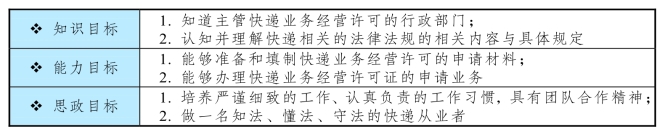 ❖ 知识目标
1. 知道主管快递业务经营许可的行政部门；
2. 认知并理解快递相关的法律法规的相关内容与具体规定
❖ 能力目标
1. 能够准备和填制快递业务经营许可的申请材料；
2. 能够办理快递业务经营许可证的申请业务
❖ 思政目标
1. 培养严谨细致的工作、认真负责的工作习惯，具有团队合作精神；
2. 做一名知法、懂法、守法的快递从业者